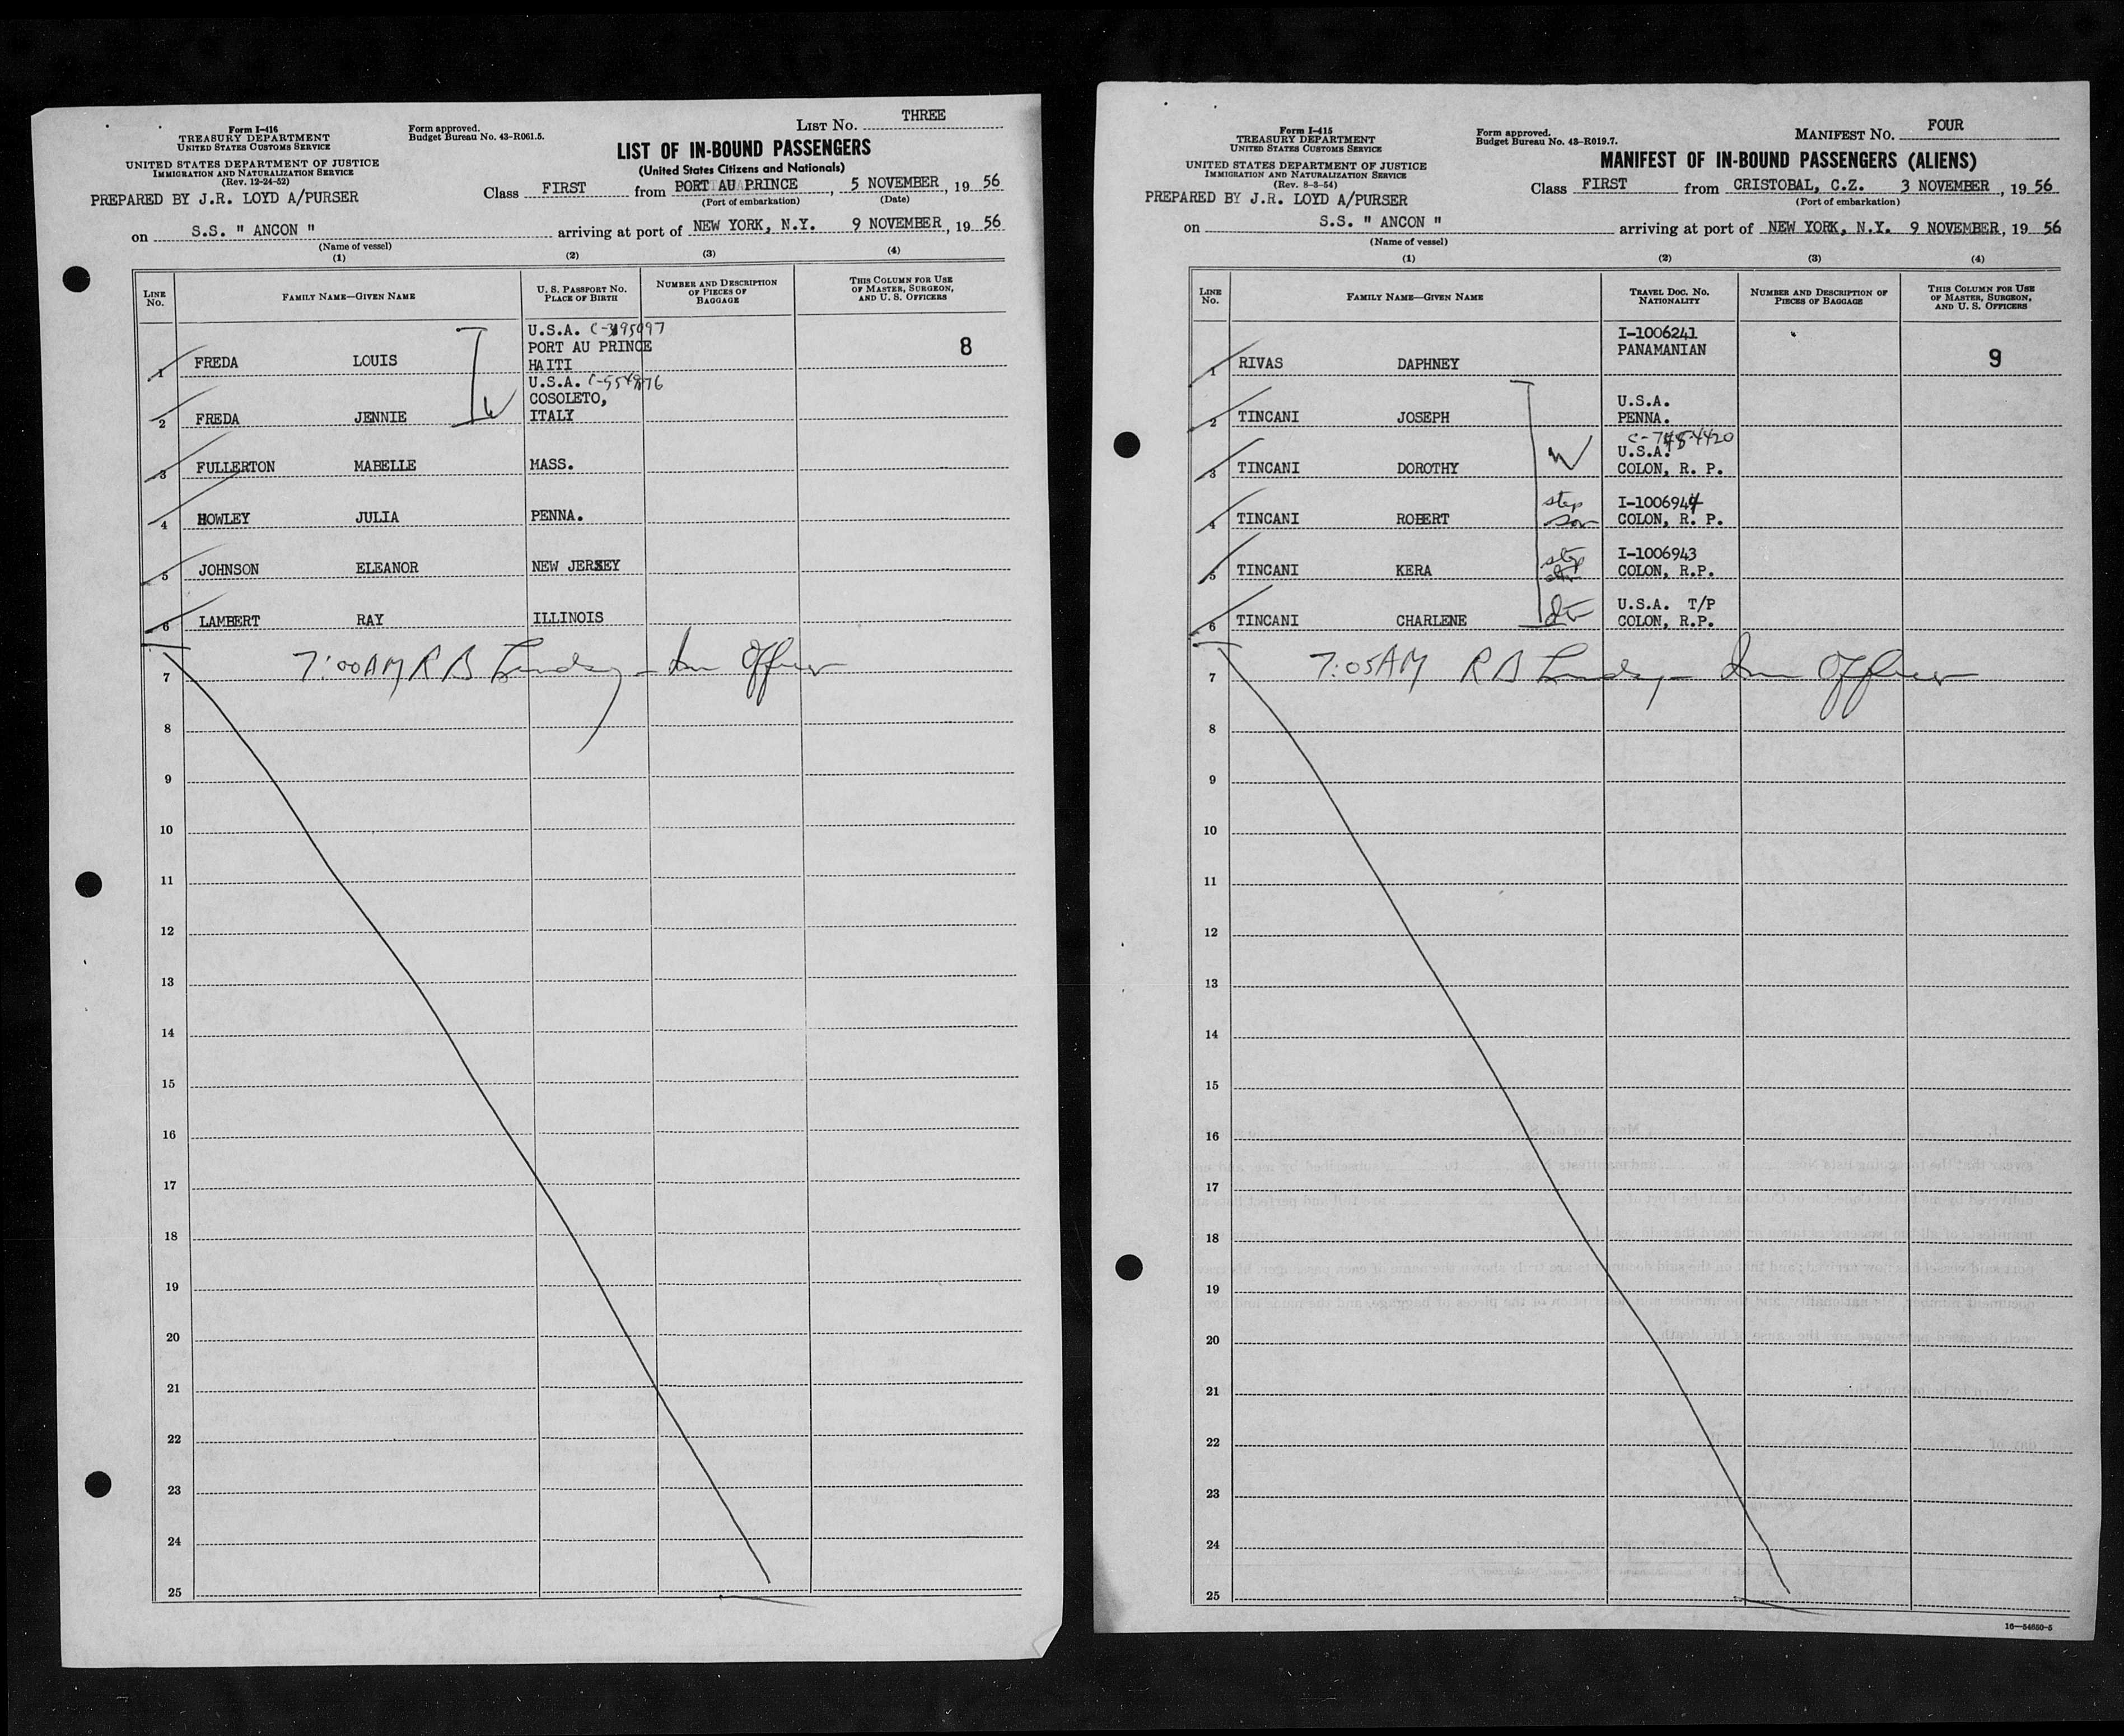 Form I-416
TREASURY DEPARTMENT
UNITED STATES CUSTOMS SERVICE
UNITED STATES DEPARTMENT OF JUSTICE
IMMIGRATION AND NATURALIZATION SERVICE
(Rev. 12-24-52)
PREPARED BY J.R. LOYD A/PURSER
Form approved.
Budget Bureau No. 43-R061.5.
LIST No. THREE
LIST OF IN-BOUND PASSENGERS
(United States Citizens and Nationals)
Class FIRST from PORT AU PRINCE, 5 NOVEMBER, 19 56
(Port of embarkation) (Date)
on S.S. " ANCON " arriving at port of NEW YORK, N.Y. 9 NOVEMBER, 19 56
(Name of vessel)
(1) (2) (3) (4)
LINE No. FAMILY NAME—GIVEN NAME U. S. PASSPORT NO. PLACE OF BIRTH NUMBER AND DESCRIPTION OF PIECES OF BAGGAGE THIS COLUMN FOR USE OF MASTER, SURGEON, AND U. S. OFFICERS
U.S.A.
PORT AU PRINCE
1 FREDA LOUIS HAITI 8
U.S.A.
COSOLETO,
2 FREDA JENNIE W ITALY
3 FULLERTON MABELLE MASS.
4 HOWLEY JULIA PENNA.
5 JOHNSON ELEANOR NEW JERSEY
6 LAMBERT RAY ILLINOIS
7 7:00AM R B Lindsay - Im Officer
8
9
10
11
12
13
14
15
16
17
18
19
20
21
22
23
24
25
Form I-415
TREASURY DEPARTMENT
UNITED STATES CUSTOMS SERVICE
UNITED STATES DEPARTMENT OF JUSTICE
IMMIGRATION AND NATURALIZATION SERVICE
(Rev. 8-3-54)
PREPARED BY J.R. LOYD A/PURSER
Form approved.
Budget Bureau No. 43-R019.7.
MANIFEST No. FOUR
MANIFEST OF IN-BOUND PASSENGERS (ALIENS)
Class FIRST from CRISTOBAL, C.Z. 3 NOVEMBER, 19 56
(Port of embarkation)
on S.S. " ANCON " arriving at port of NEW YORK, N.Y. 9 NOVEMBER, 19 56
(Name of vessel)
(1) (2) (3) (4)
LINE No. FAMILY NAME—GIVEN NAME TRAVEL DOC. NO. NATIONALITY NUMBER AND DESCRIPTION OF PIECES OF BAGGAGE THIS COLUMN FOR USE OF MASTER, SURGEON, AND U. S. OFFICERS
I-1006241
PANAMANIAN
1 RIVAS DAPHNEY 9
U.S.A.
2 TINCANI JOSEPH PENNA.
U.S.A.
3 TINCANI DOROTHY W COLON, R. P.
step I-1006944
4 TINCANI ROBERT son COLON, R. P.
step I-1006943
5 TINCANI KERA COLON, R.P.
U.S.A. T/P
6 TINCANI CHARLENE COLON, R.P.
7 7:05AM R B Lindsay - Im Officer
8
9
10
11
12
13
14
15
16
17
18
19
20
21
22
23
24
25
16—54650-5